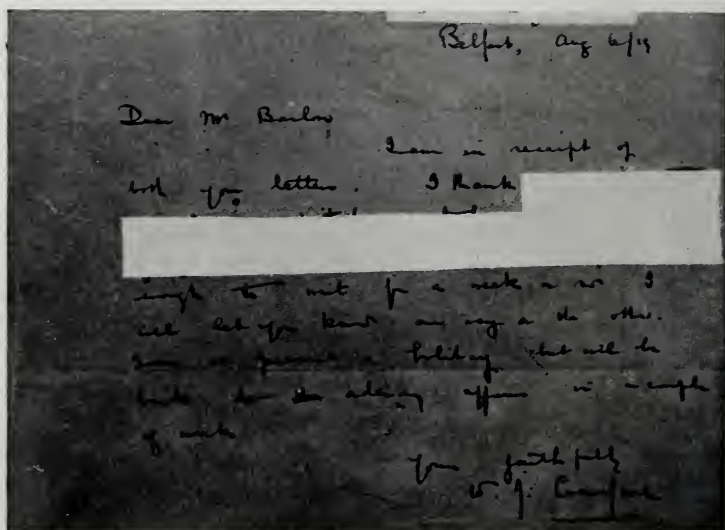 Belfast, Aug 6/19
Dear Mr Barlow
I am in receipt of
both your letters. I thank
enough to wait for a week or so I
will let you know one way or the other.
holiday but will be
back in a couple
of weeks
Yours faithfully
W. J. Crawford